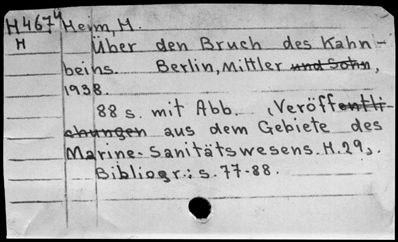 H4674 Heim, H.
H Über den Bruch des Kahn-
beins. Berlin, Mittler und Sohn,
1938.
88 s. mit Abb. (Veröffentli-
chungen aus dem Gebiete des
Marine-Sanitätswesens. H.29).
Bibliogr.: s. 77-88.